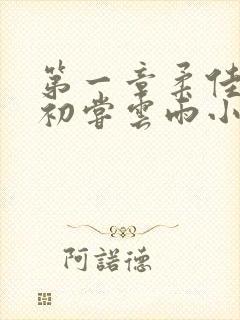 第一章柔佳
初嘗雲雨小
阿諾德